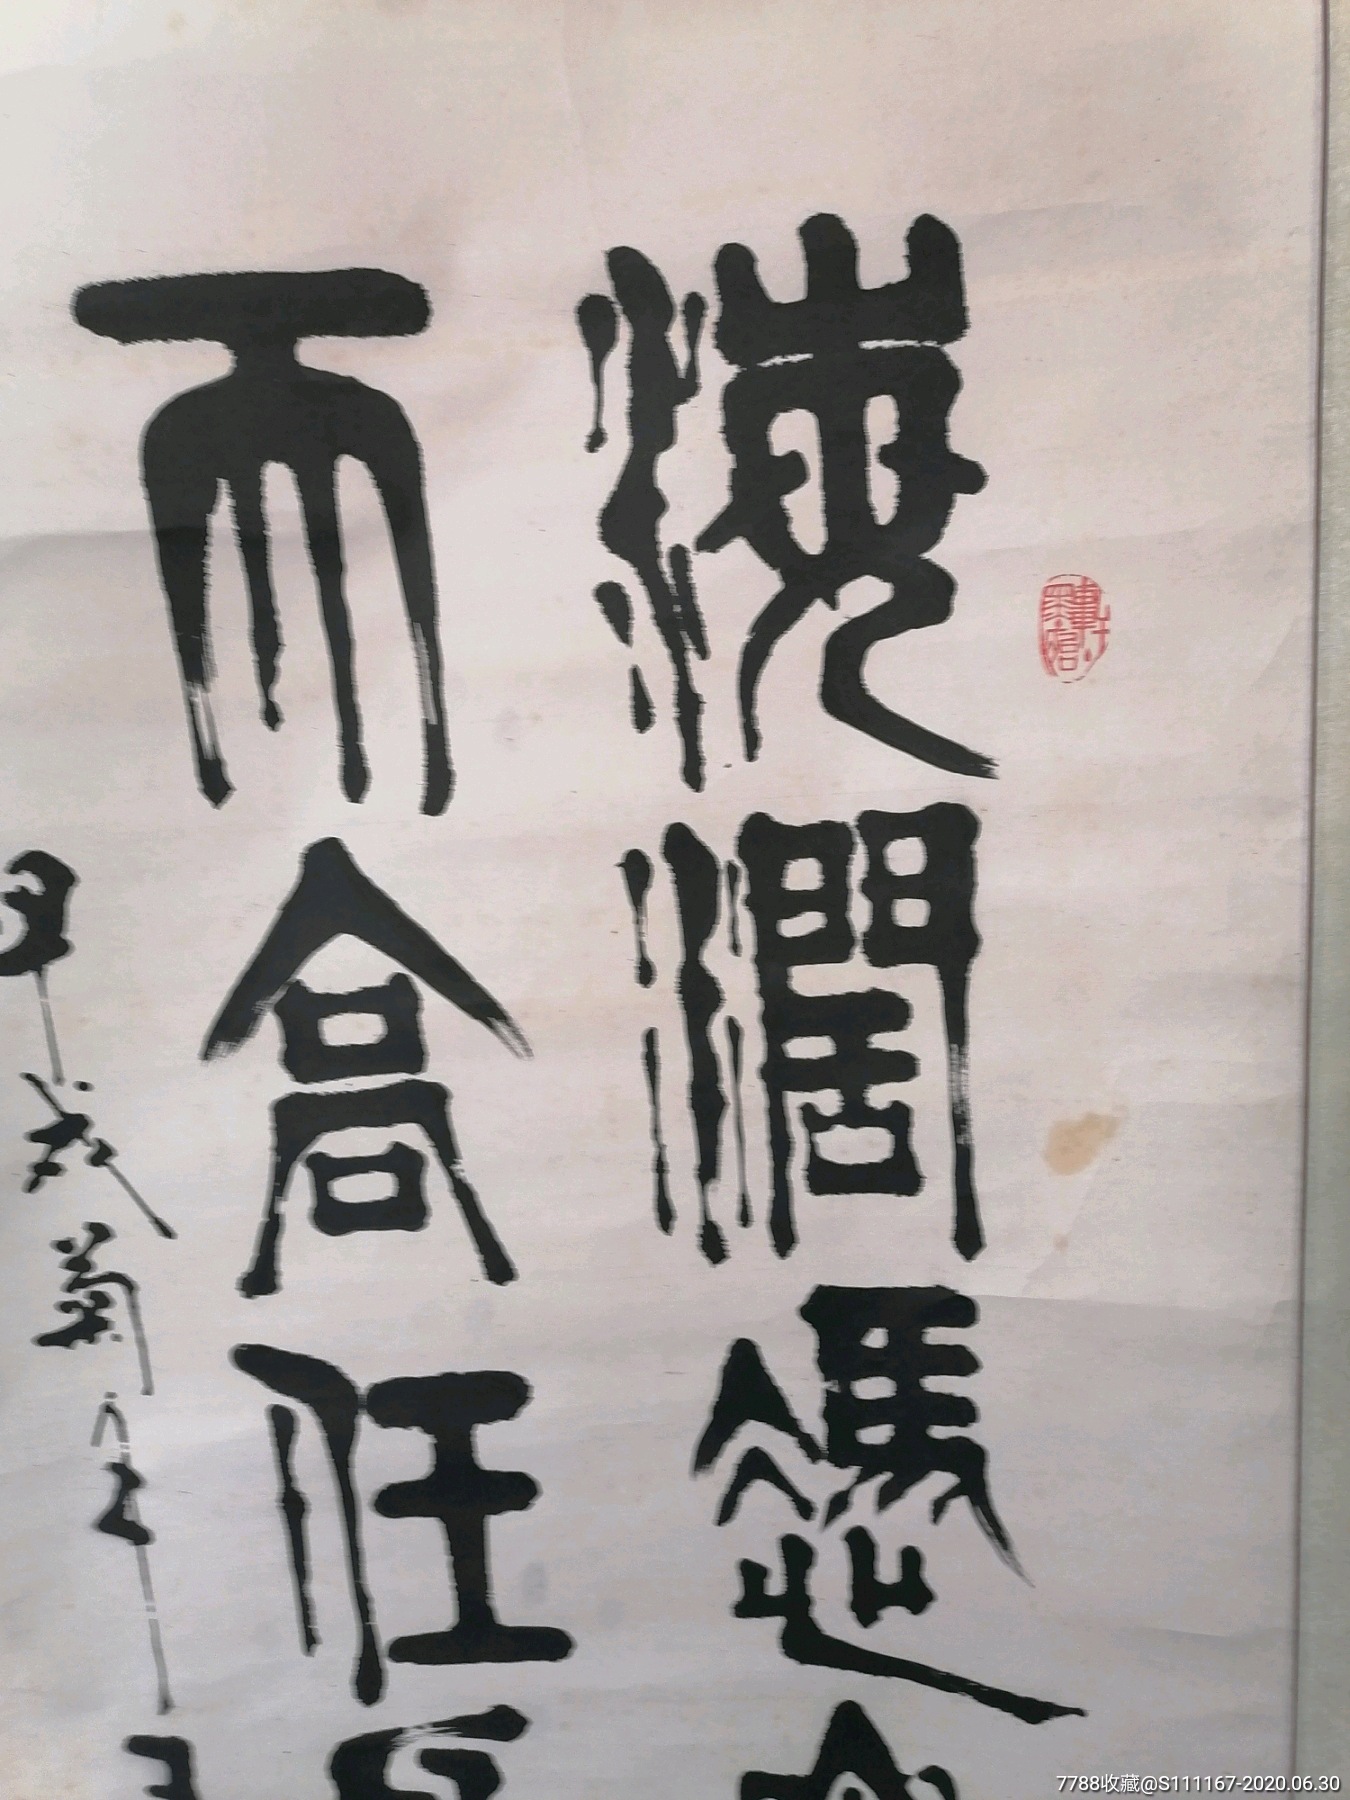 海濶憑
天高任
甲戌菊
7788收藏@S111167-2020.06.30